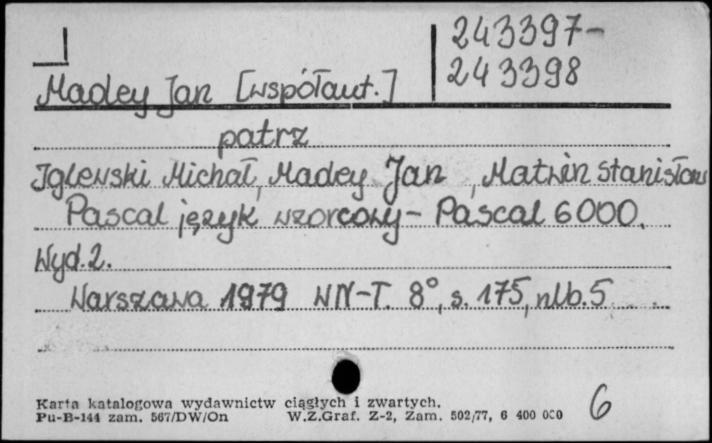 243397-
243398
Madey Jan [współaut.]
patrz
Iglewski Michał, Madey Jan, Matwin Stanisław
Pascal język wzorcowy - Pascal 6000.
Wyd. 2.
Warszawa 1979 WN-T. 8°, s. 175, nlb. 5
Karta katalogowa wydawnictw ciągłych i zwartych.
Pu-B-144 zam. 567/DW/On W.Z.Graf. Z-2, Zam. 502/77, 6 400 000
6